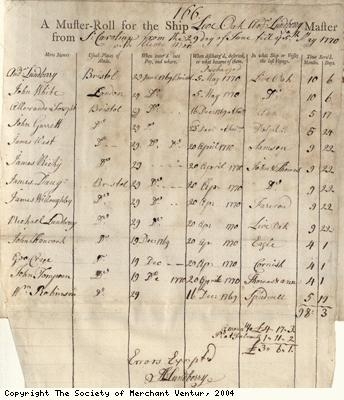 166
A Muster-Roll for the Ship Live Oak And.w Lundberry Master
from S.t Carolina from the 29 day of June till 5.th May 1770
with theire Men
Mens Names
Usual Places of Abode.
When enter'd last Pay, and where.
When discharg'd, deserted, or what became of them.
In what Ship or Vessel the last Voyage.
Time Serv'd.
Months. Days
And.w Lundberry Bristol 29 June 1769 Bristol 5 May 1770 Live Oak 10 6
John White London 29 D.o 5 May 1770 D.o 10 6
Allexander Joseph Bristol 29 D.o 16 Dec 1769 5 17
John Garrett D.o 29 D.o 5 24
James West D.o 29 D.o 20 April 1770 Samson 9 22
James D.o 29 D.o 20 April 1770 John & Thomas 9 22
James Bristol 29 D.o 20 Apr 1770 D.o 9 22
James Willoughby D.o 29 D.o 20 Apr 1770 9 22
Michael Lundberry D.o 29 D.o 20 Apr 1770 Live Oak 9 22
John Hancock D.o 19 Dec 1769 20 Apr 1770 Eagle 4 1
Geo D.o 19 Dec 20 Apr 1770 Cornish 4 1
John Tompson D.o 19 D.o 1770 20 Aprile 1770 4 1
W.m Robinson D.o 29 16 Dec 1769 Speedwell 5 17
98 3
£4. 17. 3
1. 11. 2
£3. 6. 1.
Errors Exsept'd
A Lundberry
Copyright The Society of Merchant Ventur, 2004